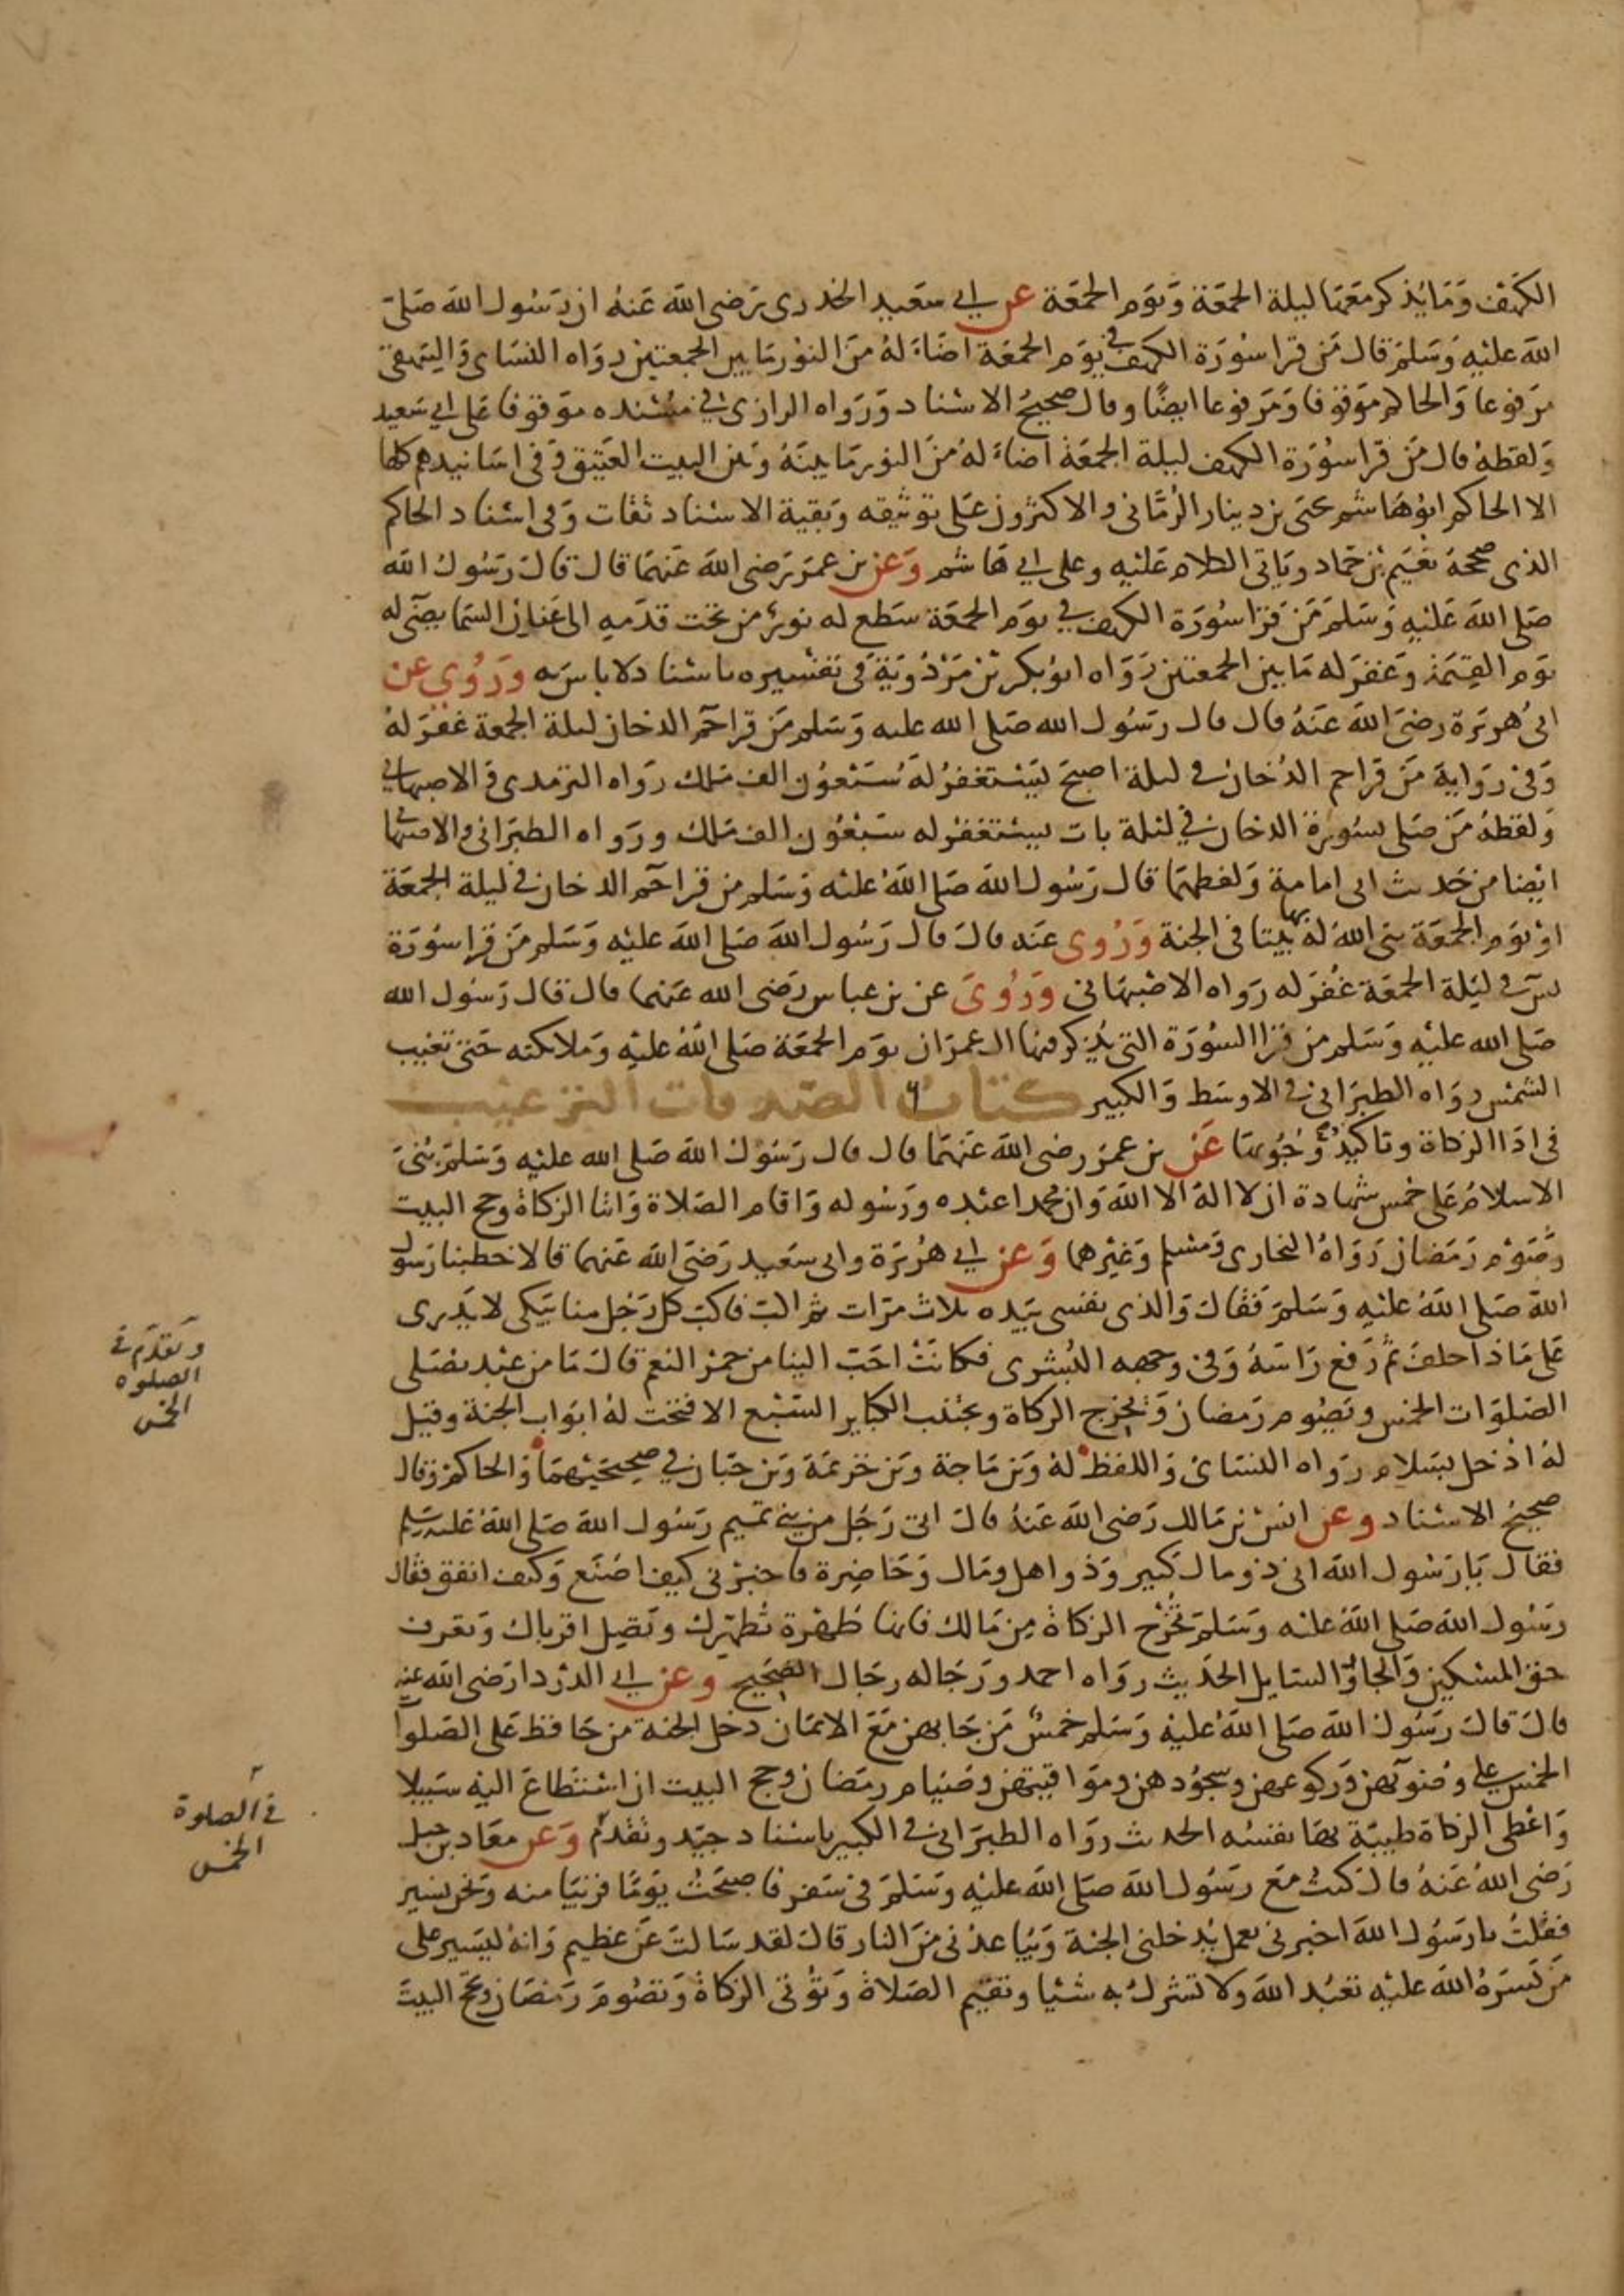 الكهف وما يذكر معها ليلة الجمعة ويوم الجمعة عن ابي سعيد الخدري رضي الله عنه ان رسول الله صلى
الله عليه وسلم قال من قرا سورة الكهف في يوم الجمعة اضاء له من النور ما بين الجمعتين رواه النساى والبيهقي
مرفوعا والحاكم موقوفا ومرفوعا ايضا وقال صحيح الاسناد ورواه الرازي في مسنده موقوفا على ابي سعيد
ولفظه قال من قرا سورة الكهف ليلة الجمعة اضاء له من النور ما بينه وبين البيت العتيق وفي اسانيدهم كلها
الا الحاكم ابو هاشم يحيى بن دينار الرماني والاكثرون على توثيقه وبقية الاسناد ثقات وفي اسناد الحاكم
الذي صححه نعيم بن حماد وياتي الكلام عليه وعلى ابي هاشم وعن بن عمر رضي الله عنهما قال قال رسول الله
صلى الله عليه وسلم من قرا سورة الكهف في يوم الجمعة سطع له نور من تحت قدمه الى عنان السما يضيء له
يوم القيمة وغفر له ما بين الجمعتين رواه ابو بكر بن مردوية في تفسيره باسناد لا باس به وروي عن
ابي هريرة رضي الله عنه قال قال رسول الله صلى الله عليه وسلم من قرا حم الدخان ليلة الجمعة غفر له
وفي رواية من قرا حم الدخان في ليلة اصبح يستغفر له سبعون الف ملك رواه الترمدى والاصبهاني
ولفظه من صلى بسورة الدخان في ليلة بات يستغفر له سبعون الف ملك ورواه الطبراني والاصبهاني
ايضا من حديث ابي امامة ولفظهما قال رسول الله صلى الله عليه وسلم من قرا حم الدخان في ليلة الجمعة
او يوم الجمعة بنى الله له بها بيتا في الجنة وروى عنه قال قال رسول الله صلى الله عليه وسلم من قرا سورة
يس في ليلة الجمعة غفر له رواه الاصبهاني وروى عن بن عباس رضي الله عنهما قال قال رسول الله
صلى الله عليه وسلم من قرا السورة التي يذكر فيها ال عمران يوم الجمعة صلى الله عليه وملائكته حتى تغيب
الشمس رواه الطبراني في الاوسط والكبير كتاب الصدقات الترغيب
في اذا الزكاة وتاكيد وجوبها عن بن عمر رضي الله عنهما قال قال رسول الله صلى الله عليه وسلم بنى
الاسلام على خمس شهادة ان لا اله الا الله وان محمدا عبده ورسوله واقام الصلاة وايتا الزكاة وحج البيت
وصوم رمضان رواه البخاري ومسلم وغيرهما وعن ابي هريرة وابي سعيد رضي الله عنهما قالا خطبنا رسول
الله صلى الله عليه وسلم فقال والذي نفسي بيده ثلاث مرات ثم اكب فاكب كل رجل منا يبكي لا يدرى
على ماذا حلف ثم رفع راسه وفي وجهه البشرى فكانت احب الينا من حمر النعم قال ما من عبد يصلى
الصلوات الخمس ويصوم رمضان ويخرج الزكاة ويجتنب الكباير السبع الا فتحت له ابواب الجنة وقيل
له ادخل بسلام رواه النساى واللفظ له وبن ماجة وبن خزيمة وبن حبان في صحيحيهما والحاكم وقال
صحيح الاسناد وعن انس بن مالك رضي الله عنه قال اتى رجل من بني تميم رسول الله صلى الله عليه وسلم
فقال يا رسول الله اني ذو مال كبير وذو اهل ومال وحاضرة فاخبرني كيف اصنع وكيف انفق فقال
رسول الله صلى الله عليه وسلم تخرج الزكاة من مالك فانها طهرة تطهرك وتصل اقرباك وتعرف
حق المسكين والجار والسايل الحديث رواه احمد ورجاله رجال الصحيح وعن ابي الدردا رضي الله عنه
قال قال رسول الله صلى الله عليه وسلم خمس من جا بهن مع الايمان دخل الجنة من حافظ على الصلوات
الخمس على وضوئهن وركوعهن وسجودهن ومواقيتهن وصيام رمضان وحج البيت ان استطاع اليه سبيلا
واعطى الزكاة طيبة بها نفسه الحديث رواه الطبراني في الكبير باسناد جيد وتقدم وعن معاد بن جبل
رضي الله عنه قال كنت مع رسول الله صلى الله عليه وسلم في سفر فاصبحت يوما قريبا منه ونحن نسير
فقلت يا رسول الله اخبرني بعمل يدخلني الجنة ويباعدني من النار قال لقد سالت عن عظيم وانه ليسير على
من يسره الله عليه تعبد الله ولا تشرك به شئيا وتقيم الصلاة وتوتي الزكاة وتصوم رمضان وتحج البيت
وتقدم في
الصلوه
الخمس
في الصلوة
الخمس